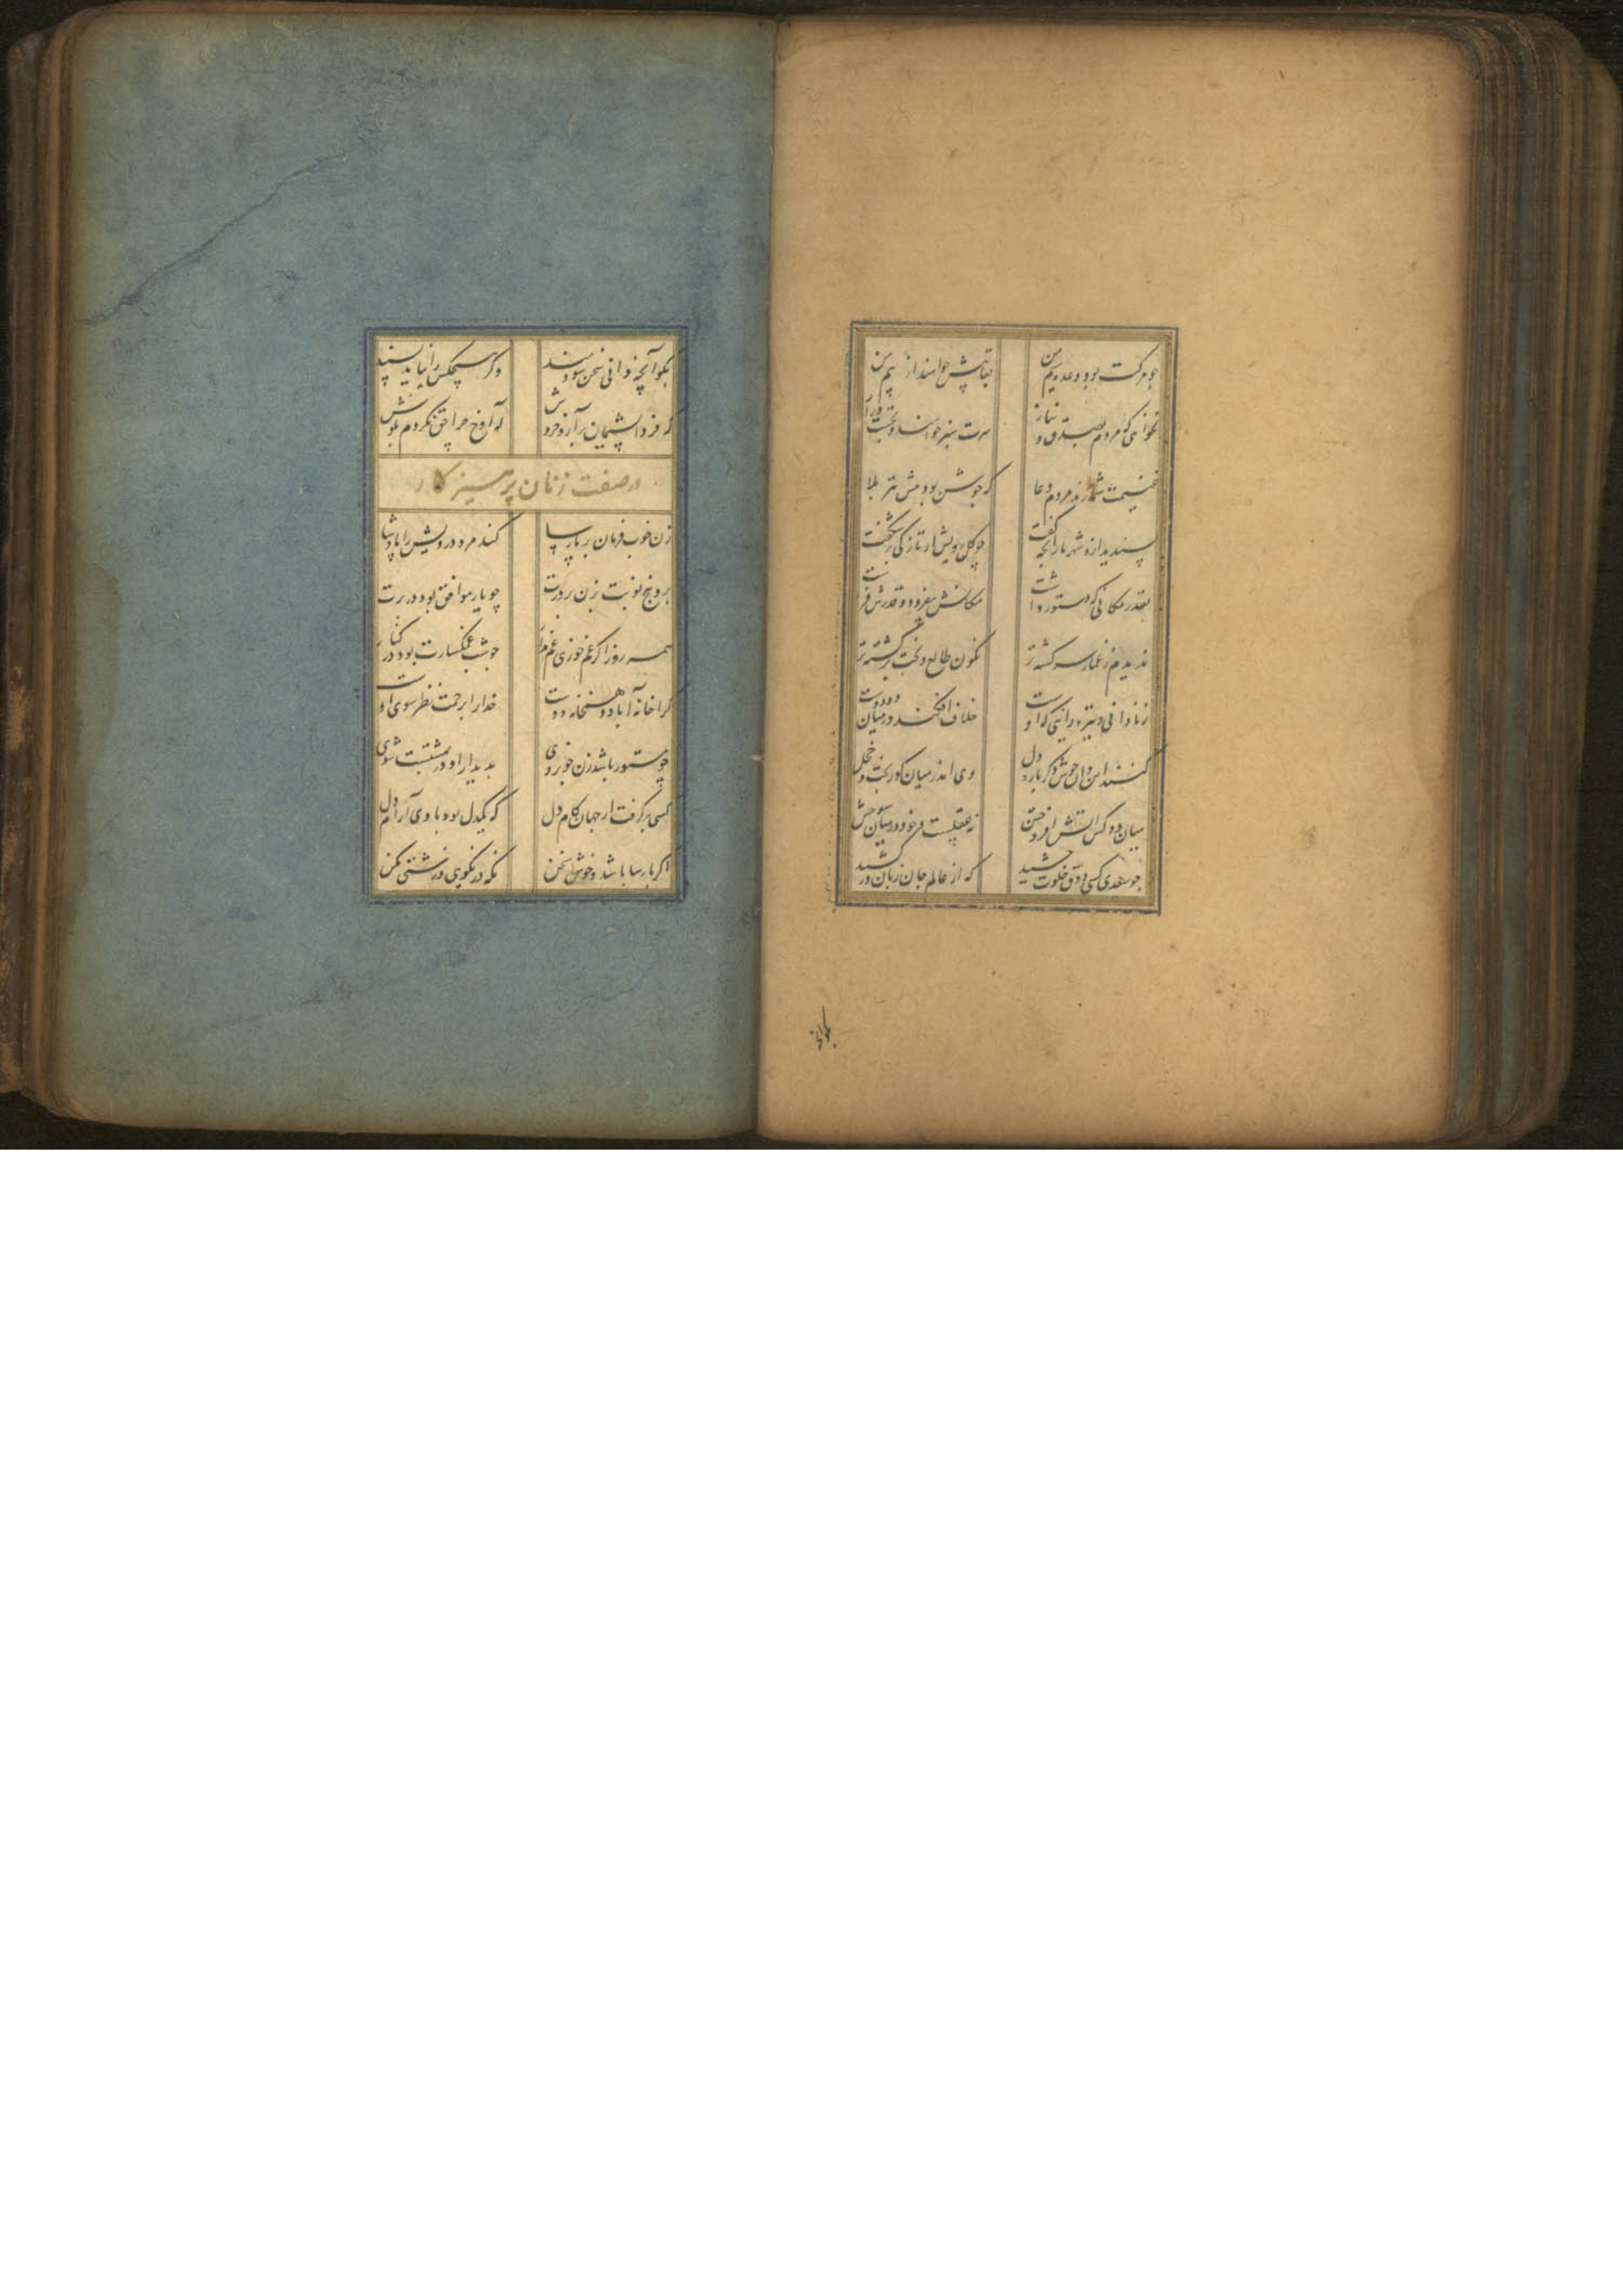 چو مرگت بود وعده سیم من
بقا بیش خواهندت از بیم من
نخواهی که مردم بصدق و نیاز
سرت سبز خواهند و عمرت دراز
غنیمت شمارند مردم دعا
که جوشن بود پیش تیر بلا
پسندید ازو شهریار آنچه گفت
چو گل رویش از تازگی برشکفت
بقدر مکانی که دستور داشت
مکانش بیفزود و قدرش فراشت
ندیدم ز غماز سرگشته‌تر
نگون طالع و بخت برگشته‌تر
ز نادانی و تیره رائی که اوست
خلاف افکند در میان دو دوست
کنند این و آن خوش دگر باره دل
وی اندر میان کوربخت و خجل
میان دو کس آتش افروختن
نه عقلست و خود در میان سوختن
چو سعدی کسی ذوق خلوت چشید
که از عالم جان زبان درکشید
بگو آنچه
بگو آنچه دانی سخن سودمند
وگر هیچکس را نیاید پسند
که فردا پشیمان برآرد خروش
که آوخ چرا حق نکردم بگوش
در صفت زنان پرهیزکار
زن خوب فرمان بر پارسا
کند مرد درویش را پادشا
برو پنج نوبت بزن بر درت
چو یار موافق بود در برت
همه روز اگر غم خوری غم مدار
چو شب غمگسارت بود در کنار
کرا خانه آباد و همخانه دوست
خدا را برحمت نظر سوی اوست
چو مستور باشد زن خوبروی
بدیدار او در بهشتست شوی
کسی برگرفت از جهان کام دل
که یکدل بود با وی آرام دل
اگر پارسا باشد و خوش سخن
نگه در نکویی و زشتی مکن